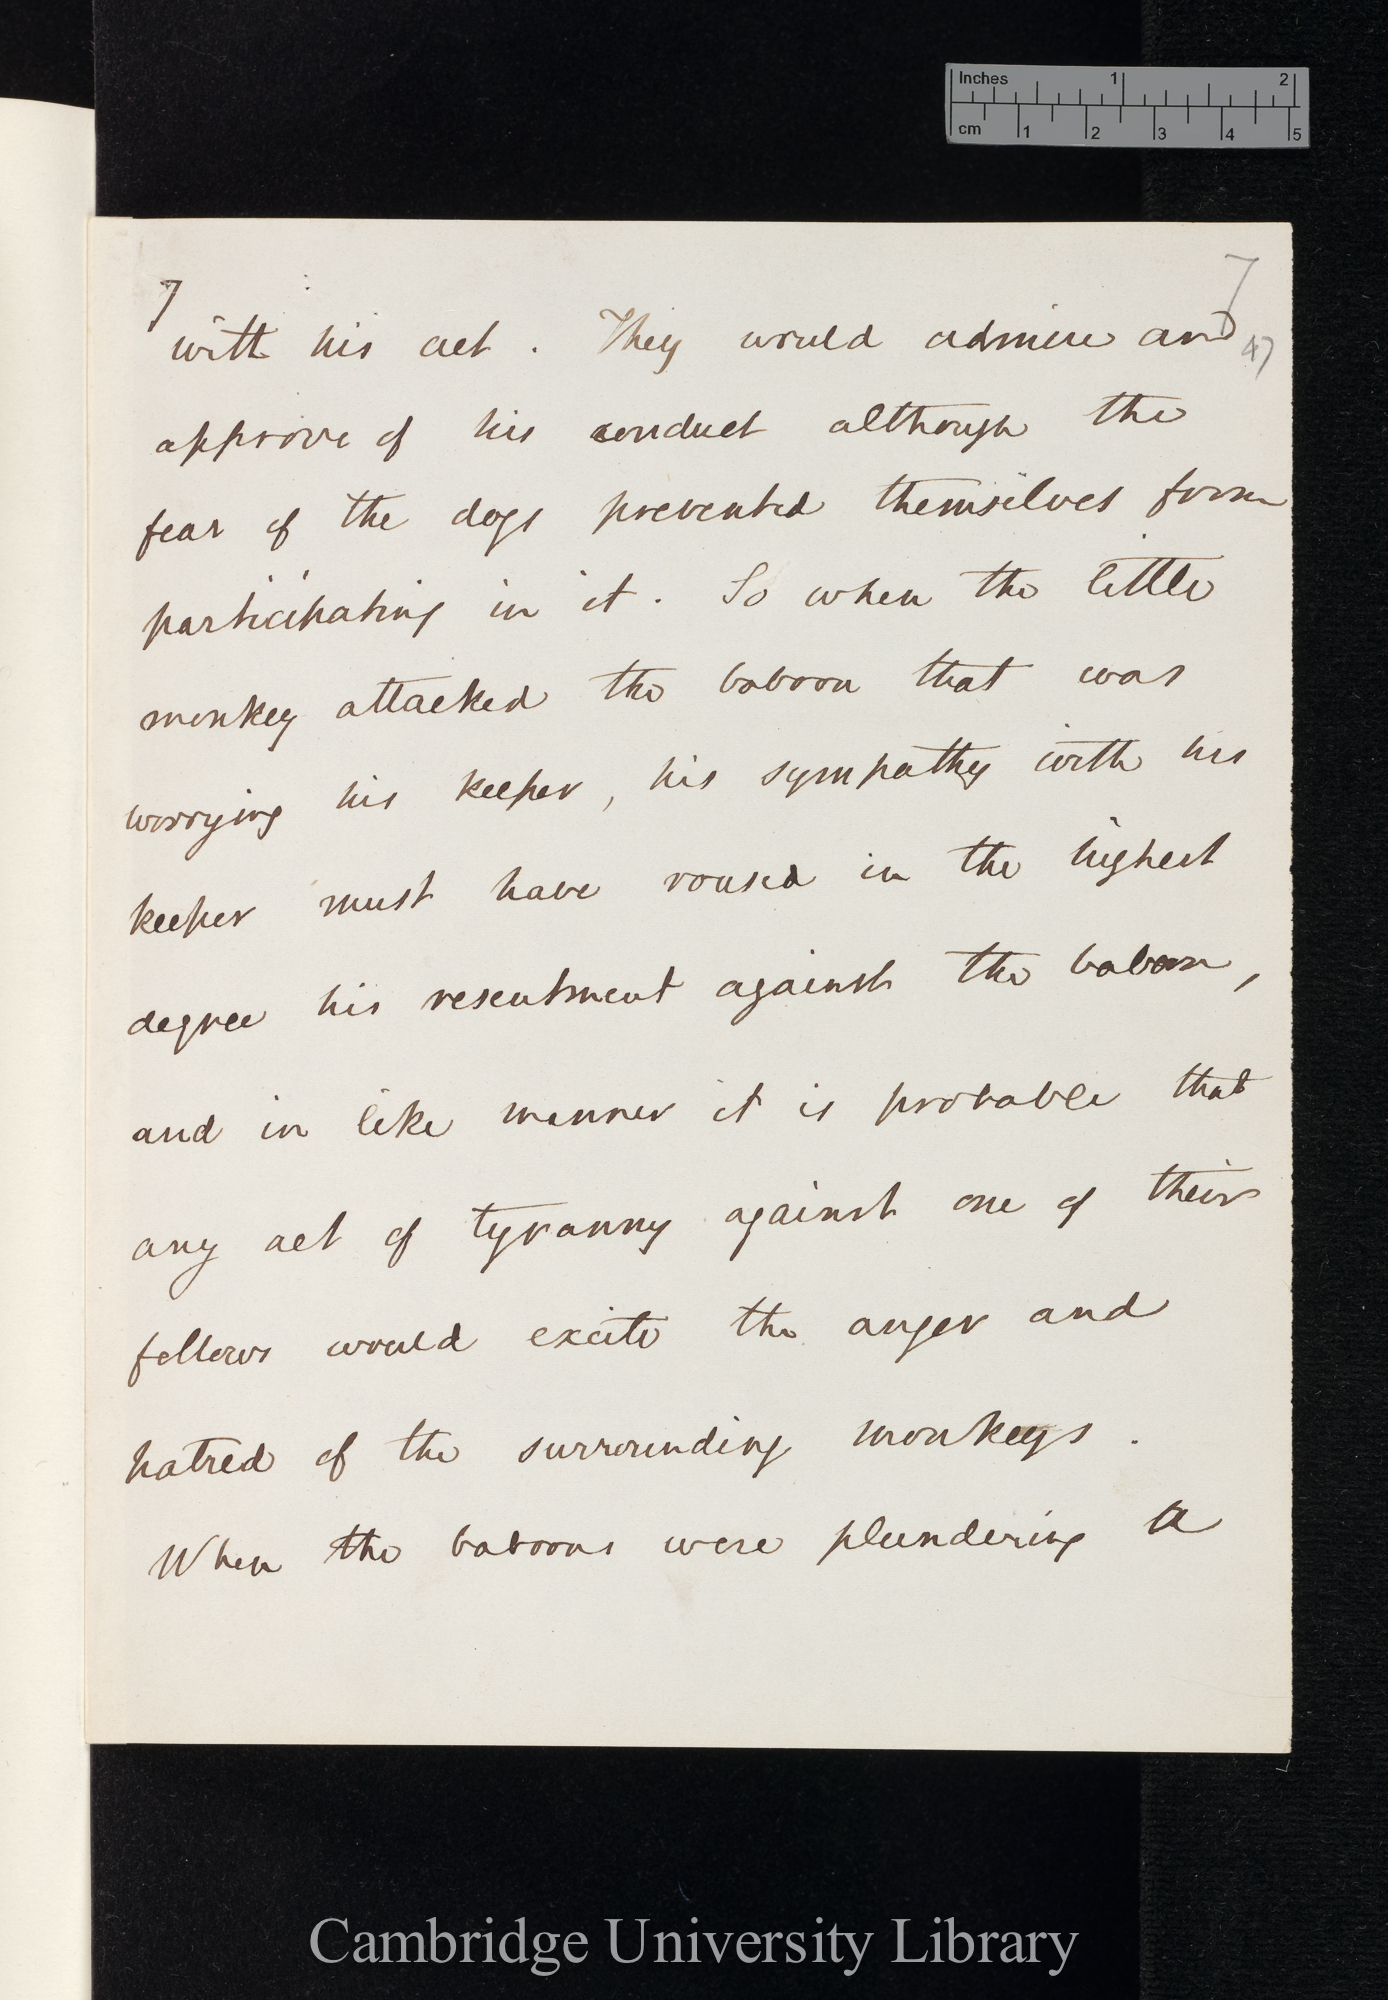 Inches 1 2
cm 1 2 3 4 5
7
7
with his act. They would admire and
47
approve of his conduct although the
fear of the dogs prevented themselves from
participating in it. So when the little
monkey attacked the baboon that was
worrying his keeper, his sympathy with his
keeper must have roused in the highest
degree his resentment against the baboon,
and in like manner it is probable that
any act of tyranny against one of their
fellows would excite the anger and
hatred of the surrounding monkeys.
When the baboons were plundering a
Cambridge University Library